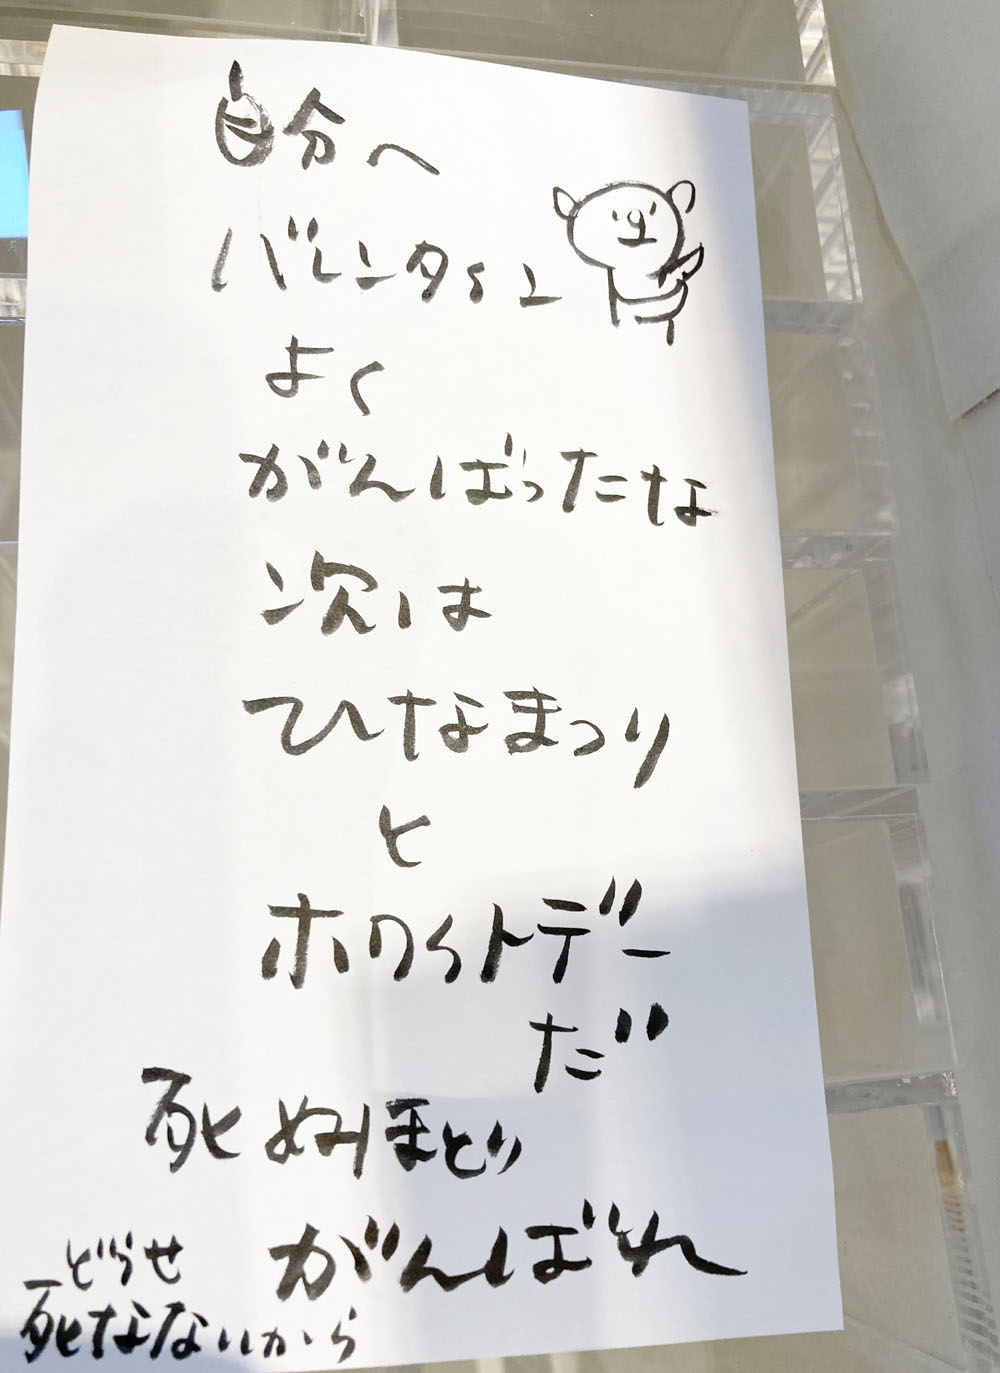 自分へ
バレンタイン
よく
がんばったな
次は
ひなまつり
と
ホワイトデー
だ
死ぬほど
がんばれ
どうせ
死なないから